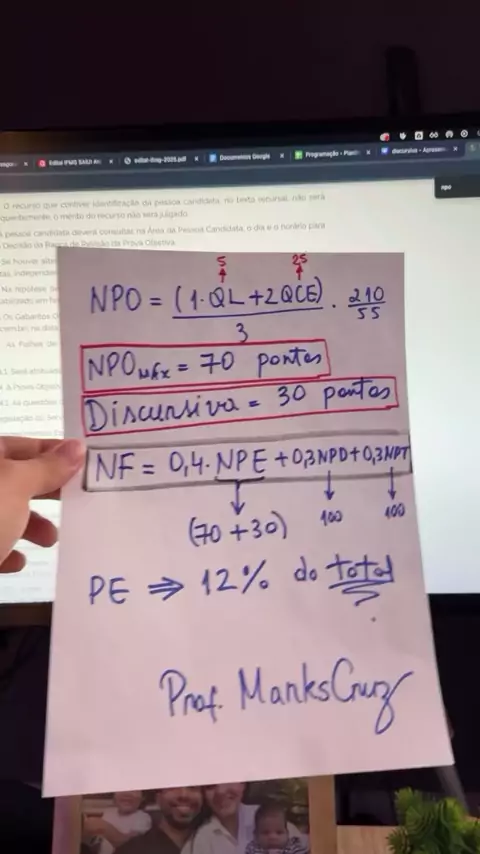 Edital IFMG
edital-ifmg-2025.pdf
Documentos Google
Programação - Plani
discursiva - Apresen
npo
O recurso que contiver identificação da pessoa candidata, no texto recursal, não será
o mérito do recurso não será julgado.
pessoa candidata deverá consultar, na Área da Pessoa Candidata, o dia e o horário para
Decisão da Banca de Revisão da Prova Objetiva.
Se houver
Na hipótese
Os Gabaritos
As Folhas de
5 25
NPO = (1·QL + 2QCE) / 3 · 210 / 55
NPO MÁX = 70 pontos
Discursiva = 30 pontos
NF = 0,4·NPE + 0,3NPD + 0,3NPT
(70 + 30) 100 100
PE ⇒ 12% do total
Prof. ManksCruz